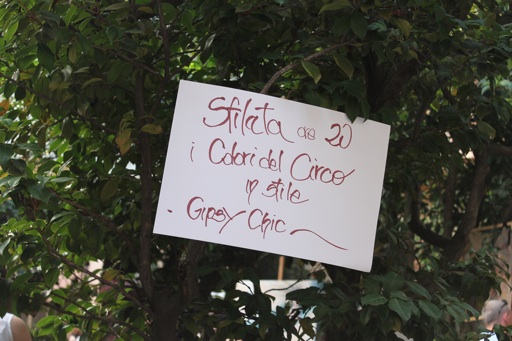 Sfilata ore 20
i Colori del Circo
in stile
- Gipsy Chic ~